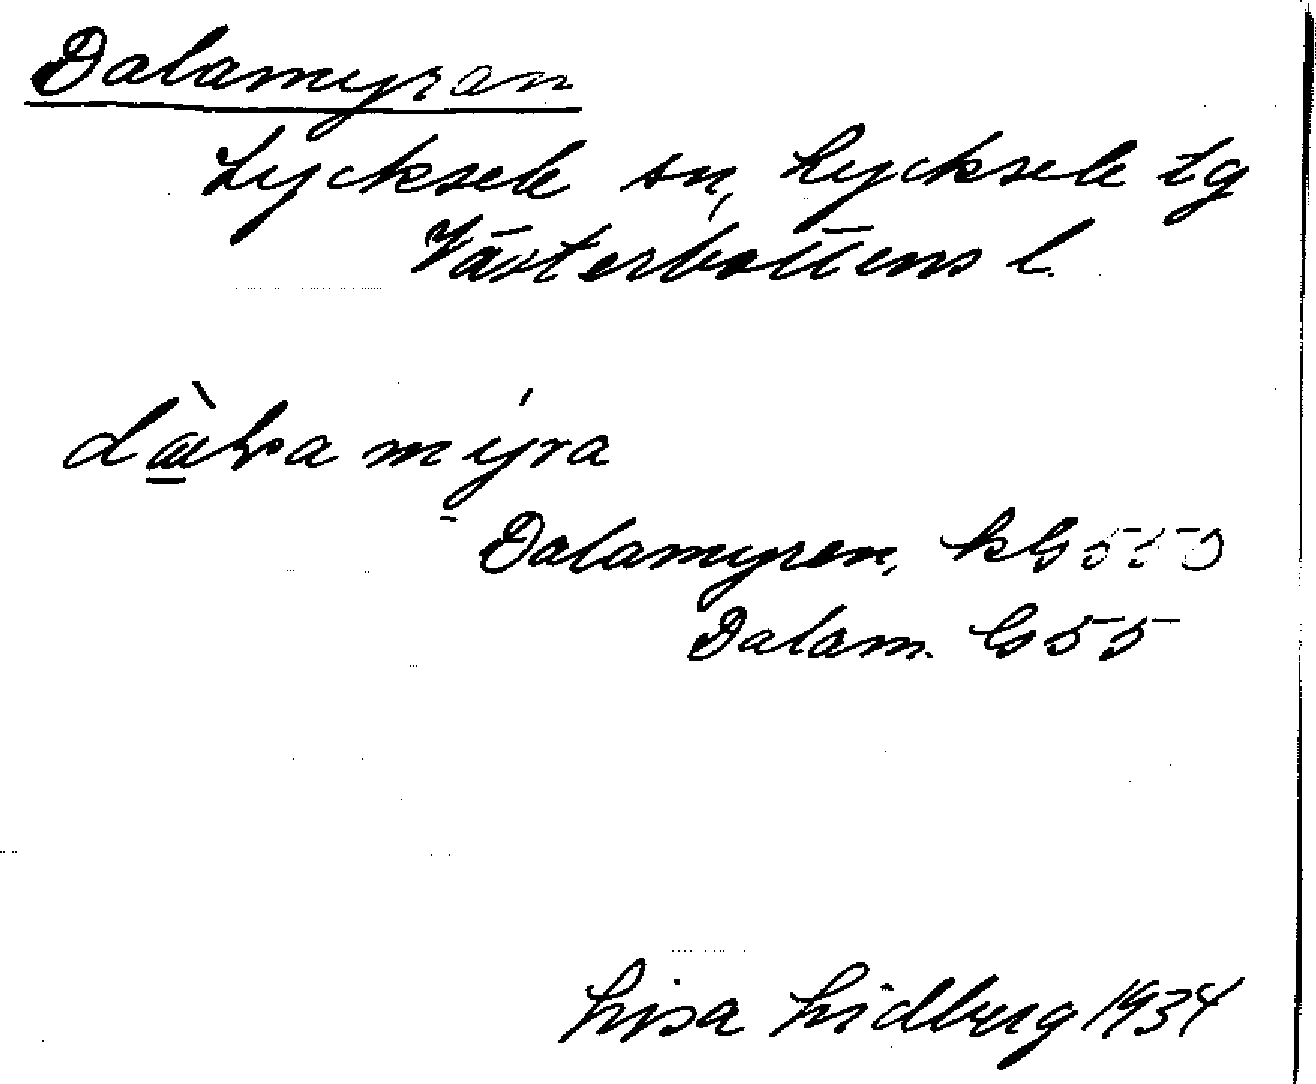 Dalamyran
Lycksele sn, Lycksele tg
Västerbottens l.
myra
Dalamyren, kG 550
Dalam. G 55
Lisa Lidberg 1934